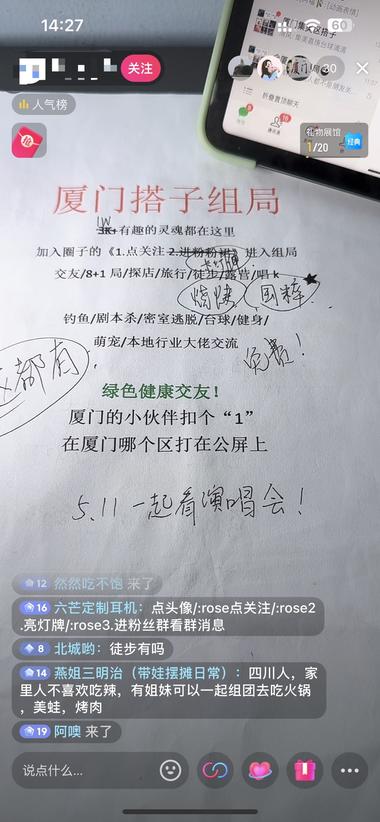 14:27
60
关注
30
人气榜
礼物展馆
1/20
经典
折叠置顶聊天
厦门搭子组局
1W
3K+有趣的灵魂都在这里
加入圈子的《1.点关注 2.进粉粉裙》进入组局
点灯牌
交友/8+1 局/探店/旅行/徒步/露营/唱 k
烧烤 国粹
钓鱼/剧本杀/密室逃脱/台球/健身/
萌宠/本地行业大佬交流
免费!
都有
绿色健康交友!
厦门的小伙伴扣个“1”
在厦门哪个区打在公屏上
5.11 一起看演唱会!
12 然然吃不饱 来了
16 六芒定制耳机:点头像/:rose点关注/:rose2
.亮灯牌/:rose3.进粉丝群看群消息
8 北城哟:徒步有吗
14 燕姐三明治(带娃摆摊日常):四川人,家
里人不喜欢吃辣,有姐妹可以一起组团去吃火锅
,美蛙,烤肉
19 阿噢 来了
说点什么...